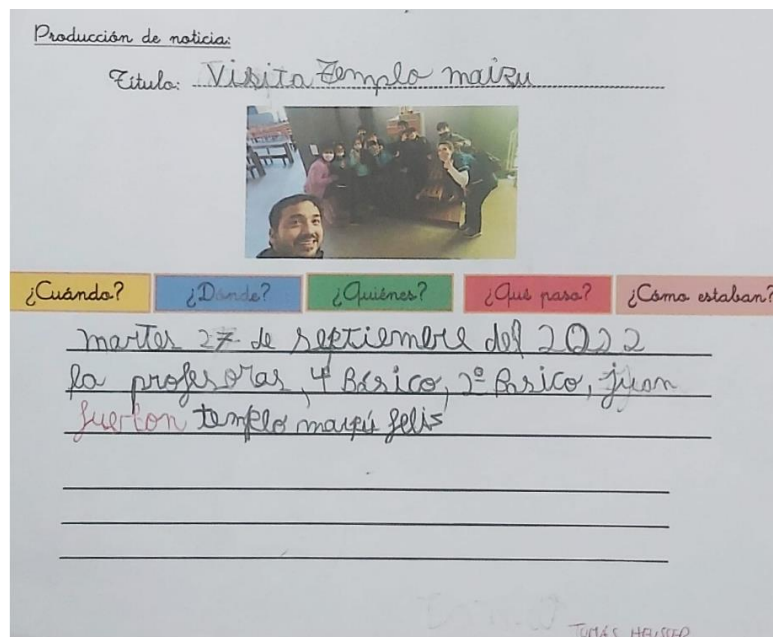 Producción de noticia:
Título: Visita Templo maizu
¿Cuándo? ¿Dónde? ¿Quiénes? ¿Qué paso? ¿Cómo estaban?
martes 27 de septiembre del 2022
la profesoras, 4 Básico, 2º Basico, fueron
fuerton templo maipú felis
TOMÁS